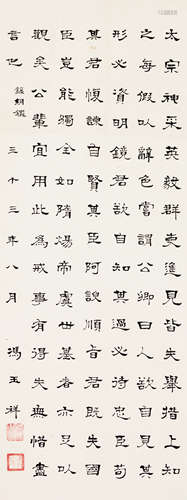 太宗神采英毅羣臣進見皆失舉措上知
之每假以辭色嘗謂公卿曰人欲自見其
形必資明鏡君欲自知其過必待忠臣苟
其君愎諫自賢其臣阿諛順旨君既失國
臣豈能獨全如隋煬帝虞世基者亦足以
觀矣公輩宜用此為戒事有得失無惜盡
言也 錄綱鑑 三十三年八月 馮玉祥